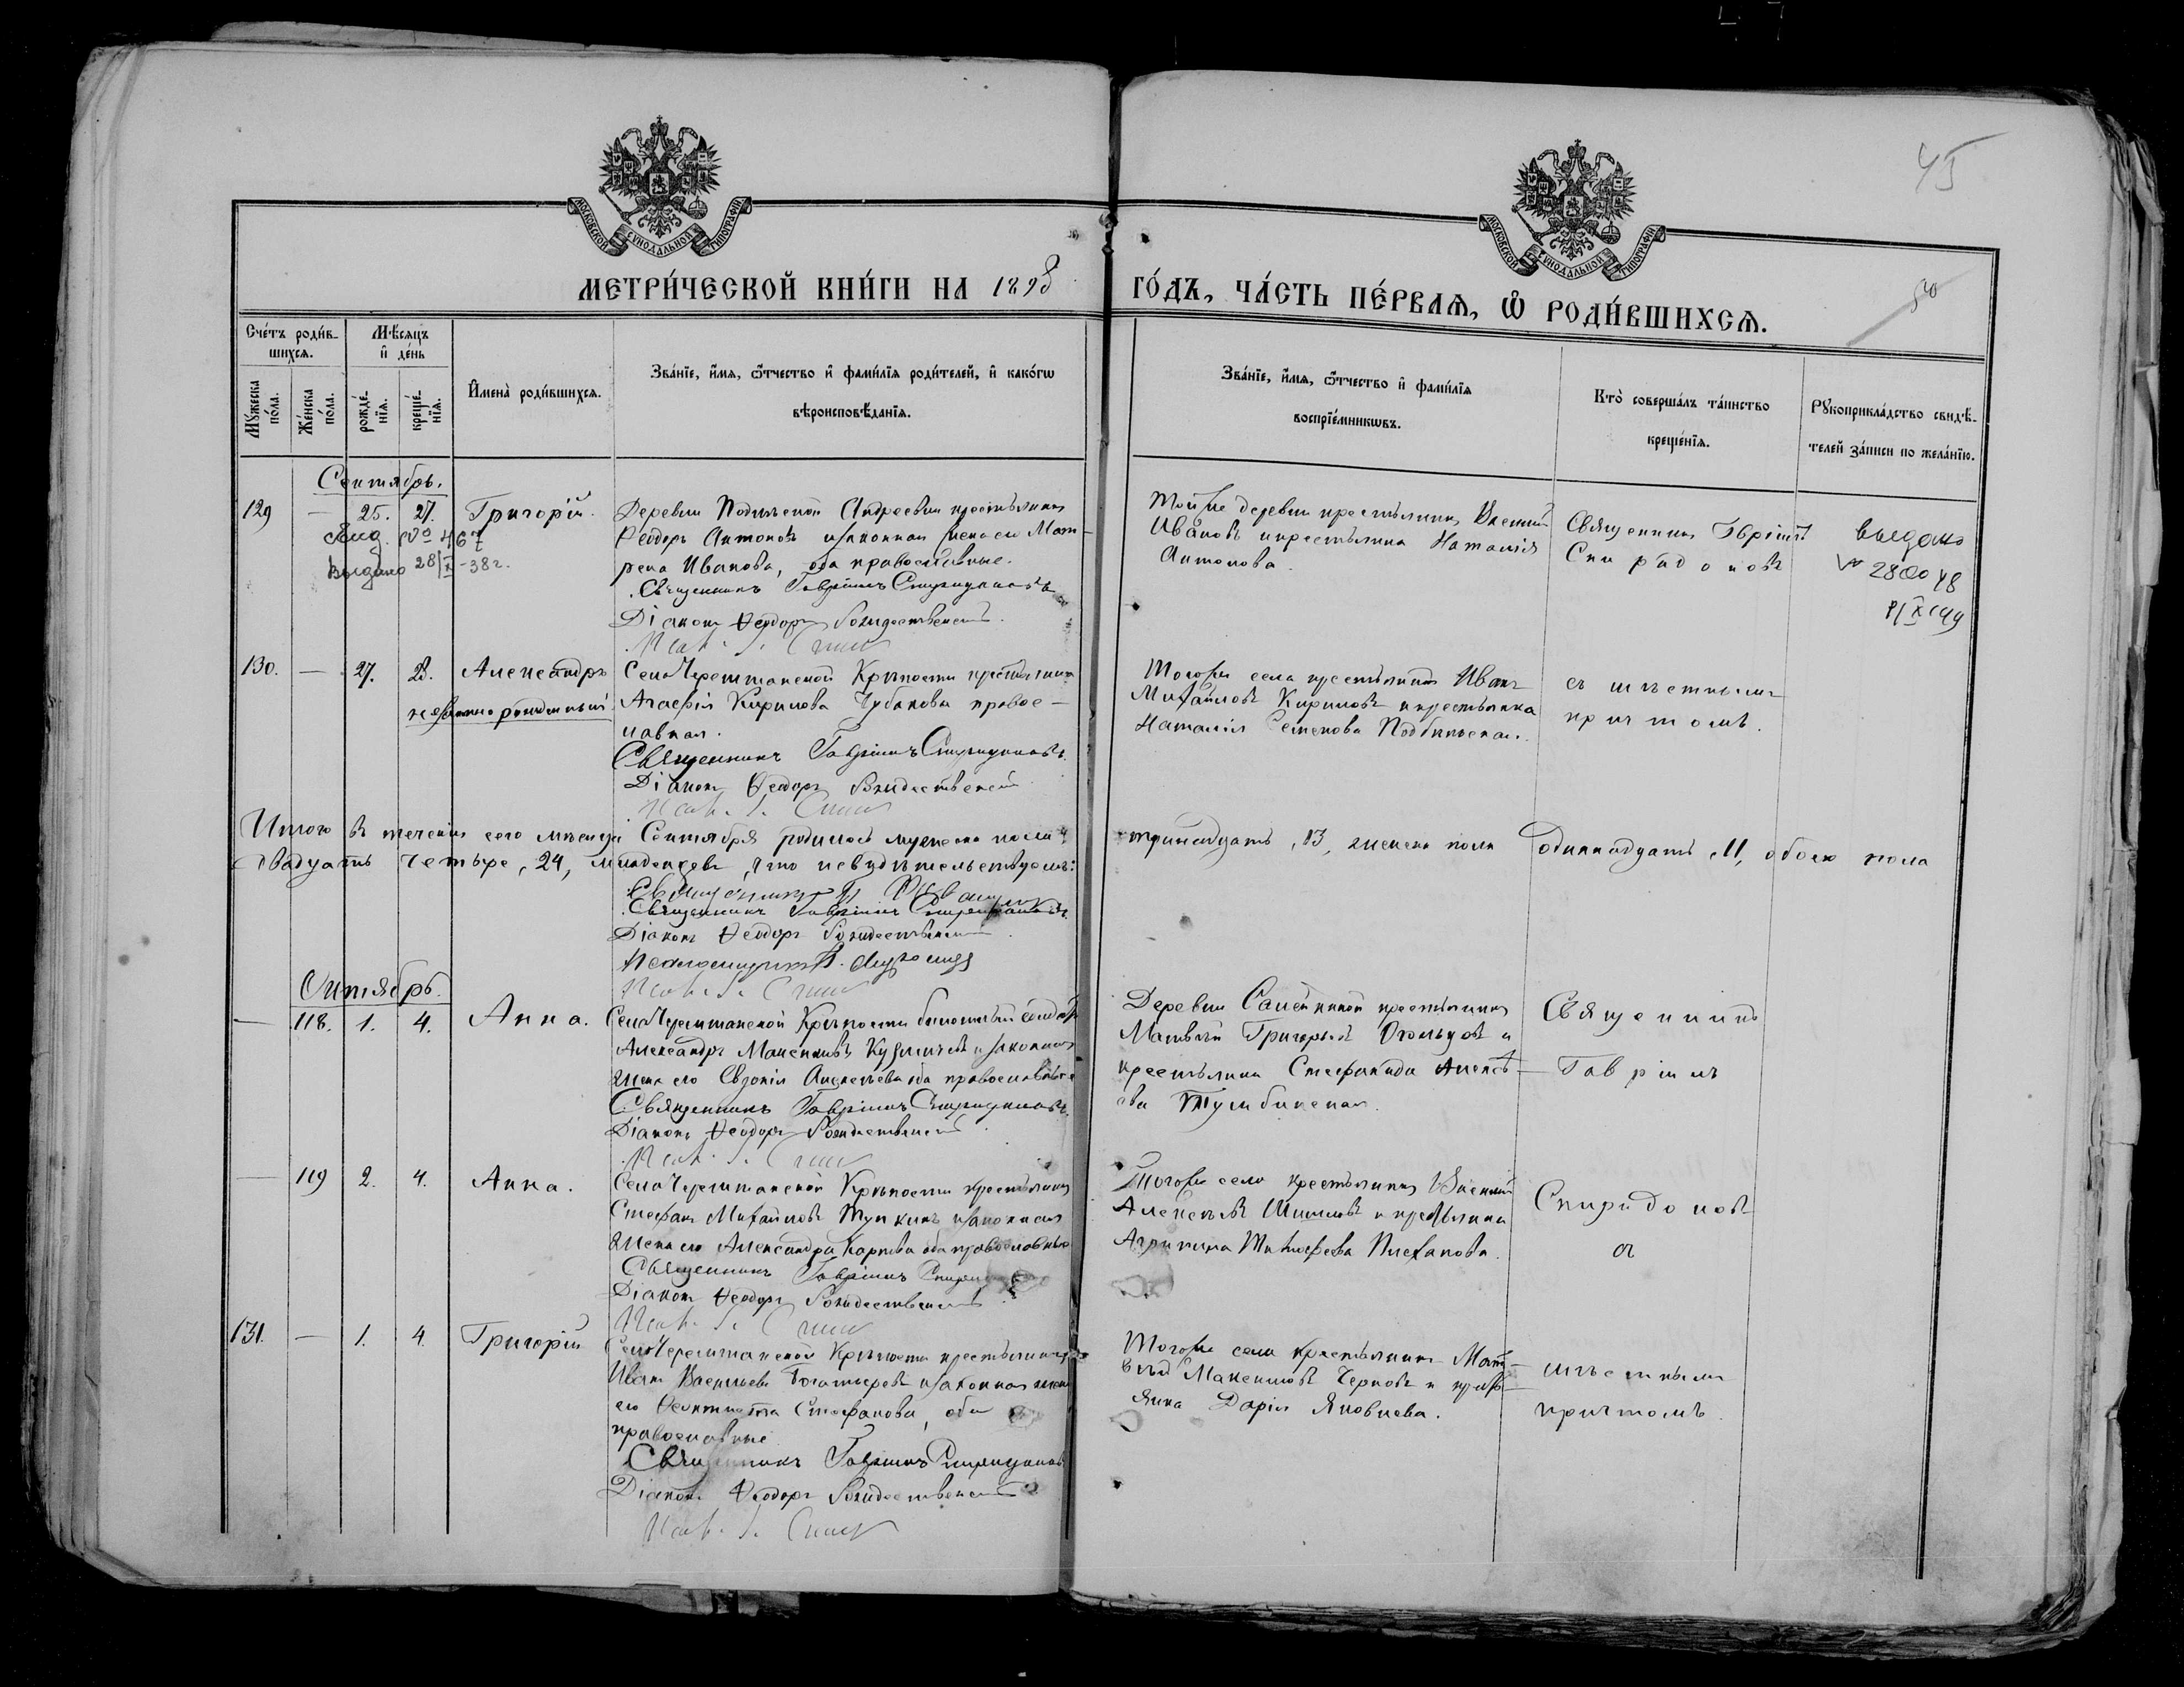 45
МОСКОВСКОЙ СѴНОДАЛЬНОЙ ТИПОГРАФІИ
МОСКОВСКОЙ СѴНОДАЛЬНОЙ ТИПОГРАФІИ
МЕТРИ́ЧЕСКОЙ КНИ́ГИ НА 1898
ГО́ДЪ, ЧА́СТЬ ПЕ́РВАѦ, Ѽ РОДИ́ВШИХСѦ.
50
Сче́тъ роди́в-
шихсѧ.
Мꙋжеска по́ла.
Же́нска по́ла.
Мѣ́сѧцъ и҆ де́нь
рожде́-
нїѧ.
креще́-
нїѧ.
И҆мена̀ роди́вшихсѧ.
Зва́нїе, и҆́мѧ, ѻ҆́тчество и҆ фами́лїѧ роди́телей, и҆ како́гѡ
вѣроисповѣ́данїѧ.
Зва́нїе, и҆́мѧ, ѻ҆́тчество и҆ фами́лїѧ
воспрїе́мникѡвъ.
Кто̀ соверша́лъ та́инство
креще́нїѧ.
Рꙋкоприкла́дство свидѣ́-
телей за́писи по жела́нїю.
Сентябрь.
129 — 25. 27. Григорій.
№ 467
Выдано 28/X-38г.
Деревни Андреевки крестьянинъ
Ѳеодоръ Антоновъ и законная жена его Мат-
рена Иванова, оба православные.
Священникъ Гавріилъ Спиридоновъ
Діаконъ Ѳеодоръ Рождественскій
Той же деревни крестьянинъ Василій
Ивановъ и крестьянка Наталія
Антонова.
Священникъ Гавріилъ
Спиридоновъ
выдано
130. — 27. 28. Александръ
незаконнорожденный
Села Черемшанской Крѣпости крестьянка
Агафія Кирилова Чубакова правос-
лавная.
Священникъ Гавріилъ Спиридоновъ.
Діаконъ Ѳеодоръ Рождественскій
Того же села крестьянинъ Иванъ
Михайловъ Кириловъ и крестьянка
Наталія Семенова
съ мѣстнымъ
причтомъ.
Итого въ теченіи сего мѣсяца Сентября родилось мужеска пола
тринадцать, 13, женска пола одиннадцать, 11, обоего пола
двадцать четыре, 24, младенцевъ, что и свидѣтельствуемъ:
Священникъ
Священникъ Гавріилъ Спиридоновъ.
Діаконъ Ѳеодоръ Рождественскій
Псаломщикъ
Октябрь
— 118. 1. 4. Анна.
Села Черемшанской Крѣпости солдатъ
Александръ Максимовъ Кузмичевъ и законная
жена его Евдокія Алексѣева оба православные
Священникъ Гавріилъ Спиридоновъ.
Діаконъ Ѳеодоръ Рождественскій
Деревни крестьянинъ
Матвѣй Григорьевъ и
крестьянка Стефанида Алексѣ-
ева
Священникъ
Гавріилъ
— 119 2. 4. Анна.
Села Черемшанской Крѣпости крестьянинъ
Стефанъ Михайловъ и законная
жена его Александра Карпова оба православные
Священникъ Гавріилъ
Діаконъ Ѳеодоръ Рождественскій
Того же села крестьянинъ Василій
Алексѣевъ и крестьянка
Агрипина Тимофеева Плеханова.
Спиридоновъ
съ
131. — 1. 4. Григорій
Села Черемшанской Крѣпости крестьянинъ
Иванъ Васильевъ Богатыревъ и законная жена
его Ѳеоктиста Стефанова, оба
православные
Священникъ Гавріилъ Спиридоновъ
Діаконъ Ѳеодоръ Рождественскій
Того же села крестьянинъ Мат-
вѣй Максимовъ Черновъ и кресть-
янка Дарія Яковлева.
мѣстнымъ
причтомъ.